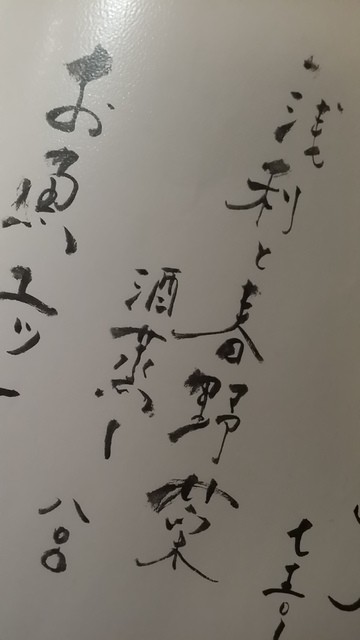 ・浅利と春野菜
酒蒸し
七五〇
お魚ユッ
八〇〇